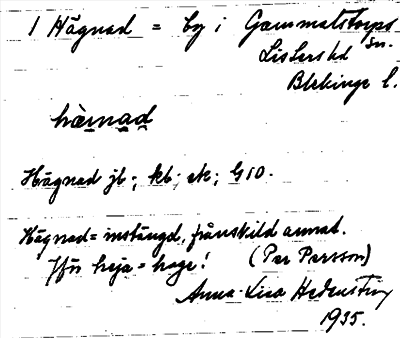 1 Hägnad = by i Gammalstorps sn.
Listers hd
Blekinge l.
hæ̀ṇnạd
Hägnad jb; kb; ek; G10.
Hägnad = instängd, frånskild annat.
Jfr heja = hage! (Per Persson)
Anna-Lisa Hedenström
1935.